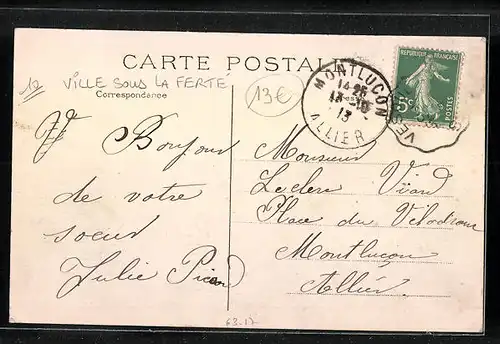 CARTE POSTALE
12
VILLE SOUS LA FERTÉ
Correspondance
13€
MONTLUCON
14 25
13
ALLIER
REPUBLIQUE FRANÇAISE
5c
POSTES
Bonjour
de votre
soeur
Julie
Monsieur
Leclerc Viard
Place du Velodrome
Montluçon
Allier
63-17